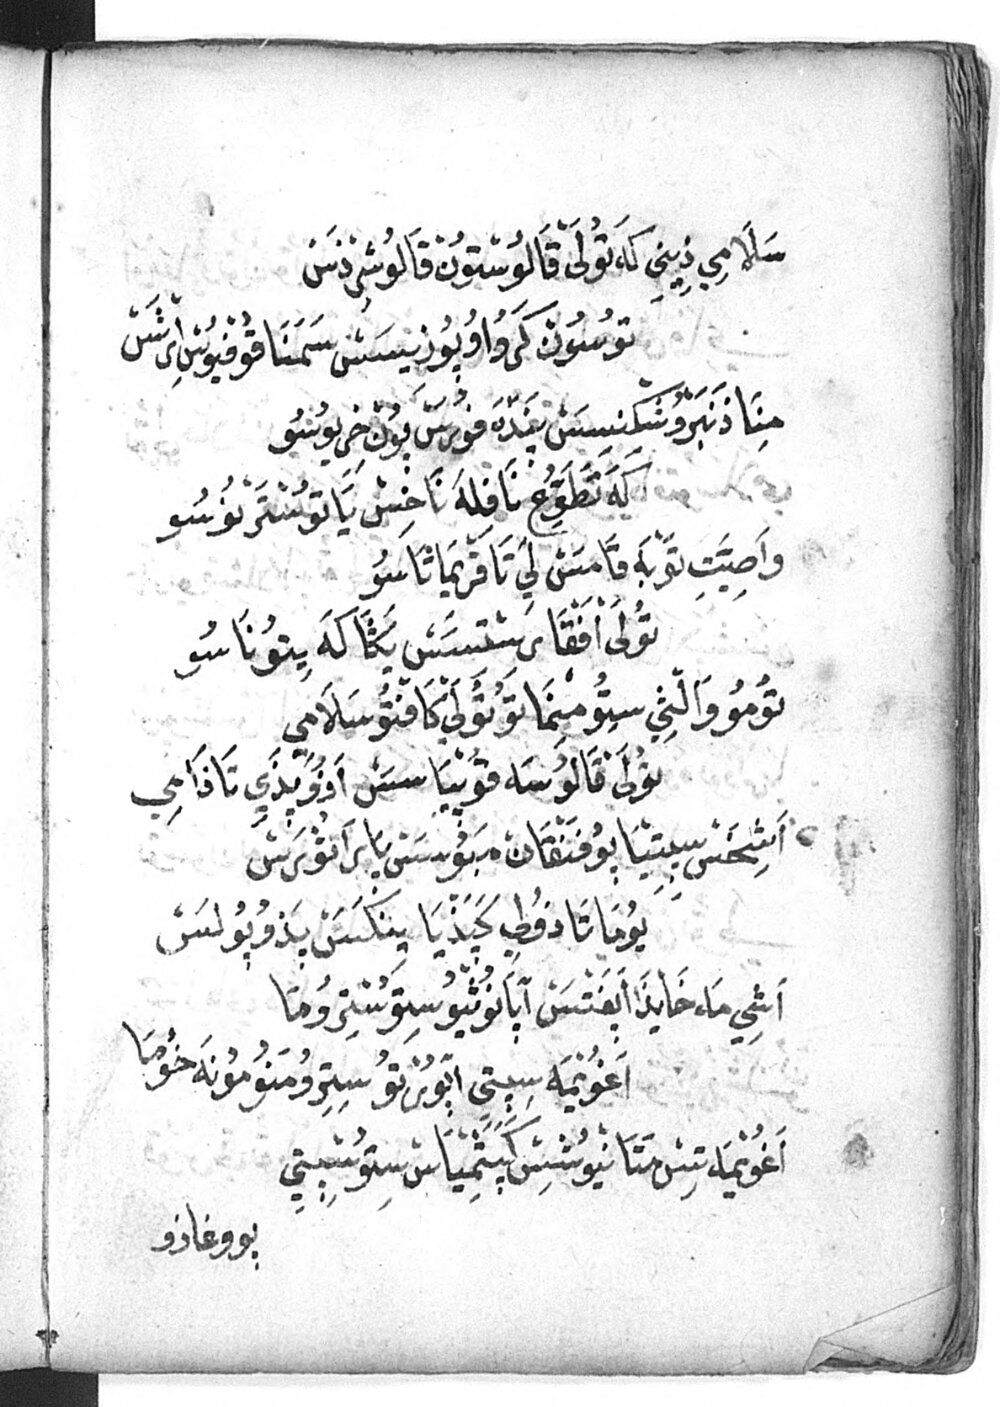 سَلَامِي ذِينِي كَه تُولَنْ قَالُوسْتُونْ قَالُوشِرْذَسْ
تُوسُونْ كَرَوُاوُپُوزِيسَسْ سَمَنَا قُوفِيُوسْ اِرْشَسْ
مِنَا ذَنَبَرُوسْكِنِسَسْ پَنْدَه فُورَسْ پُونْ خَرِيُوسُو
كَه تَطَوُّعِ نَافِلَه نَاخِسْ يَا تُوسْتَرْنُوسُو
وَاصِيَّتِ تَوْبَه قَامَسْ لِي تَا قْرِيمَاتَاسُو
تُولَنْ اَفْقَارِسْتِسَسْ پَكْتَا كَه پِتُونَاسُو
تُومُو وَالَنْثِي سِتُو مِنِمَا تُو تُولَنْ كَافِنْتُو سَلَامِي
تُولَنْ قَالُوسَه قُوپِيَاسَسْ اَوْوُپْذِي تَا ذَامِي
اَشِخَسْ سِپِتِيَا پُوفَنْقَانْ مَپُوسَسْ يَا رَاتُورَسْ
يُومَاتَا دَفُطِ كَپَذْيَا پِنَكَسَسْ پَذُوپُولَسْ
اَشِي مَه خَايِذَا اَپَفَتَسَنْ اَپَانُوتِيُوسِتُوسْتِرُومَا
اَغُوئِمَه سِپِتِي اَپُورْتُوسِتِرُو مَنُومُونَه خُومَا
اَغُوئِمَه تِسْ مَتَانِيُوسْتِسْ كَپَتِمِيَاسْ سِتُوسْپِتِي
پووغاذو